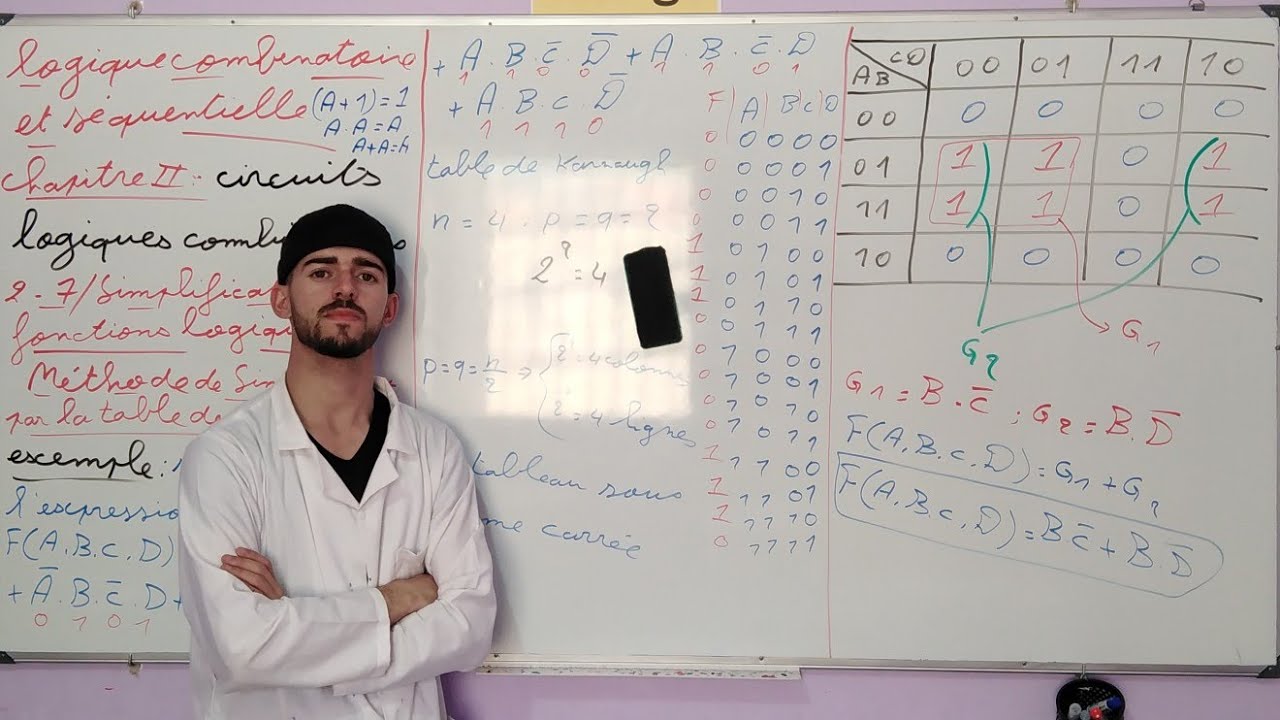 logique combinatoire
et séquentielle
(A+1)=1
A.A=A
Chapitre II:- circuits
logiques comb
2-7/Simplifica
fonctions logiq
Méthode de Sim
par la table de
exemple:
l'expressio
F(A.B.C.D)
+ A̅.B.C̅.D+
0 1 0 1
+ A.B.C̅.D̅ + A.B.C̅.D
1 1 0 0 1 1 0 1
+ A.B.C.D̅
1 1 1 0
table de Karnaugh
n = 4 . p = q = 2
2² = 4
p=q=n/2 ⇒ { 2² = 4 colonnes
2² = 4 lignes
tableau sous
me carrée
F | A | B | C | D
0 0 0 0 0
0 0 0 0 1
0 0 0 1 0
0 0 0 1 1
1 0 1 0 0
1 0 1 0 1
1 0 1 1 0
0 0 1 1 1
0 1 0 0 0
0 1 0 0 1
0 1 0 1 0
0 1 0 1 1
1 1 1 0 0
1 1 1 0 1
1 1 1 1 0
0 1 1 1 1
CD
AB 00 01 11 10
00 0 0 0 0
01 1 1 0 1
11 1 1 0 1
10 0 0 0 0
G1
G2
G1 = B.C̅ ; G2 = B.D̅
F(A.B.C.D) = G1 + G2
F(A.B.C.D) = BC̅ + B.D̅